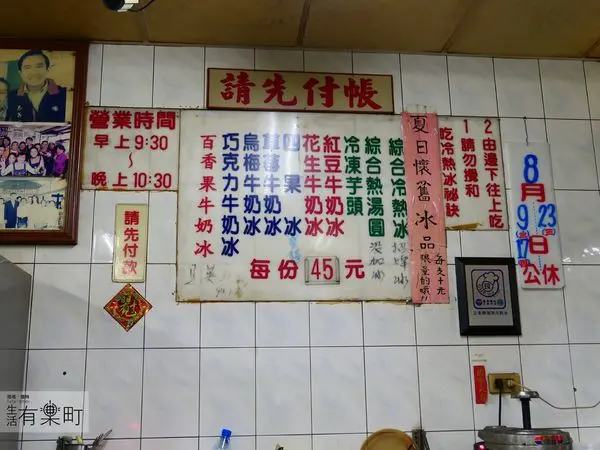 請先付帳
營業時間
早上9:30
～
晚上10:30
請先付款
綜合冷熱冰
綜合熱湯圓
冷凍芋頭
紅豆牛奶冰
花生牛奶冰
四果冰
草莓牛奶冰
烏梅牛奶冰
巧克力牛奶冰
百香果牛奶冰
每份45元
夏日懷舊冰品
限量的哦!!
每支十元
吃冷熱冰祕訣
1請勿攪和
2由邊下往上吃
8月
9
23
17
日
公休
生活有樂町